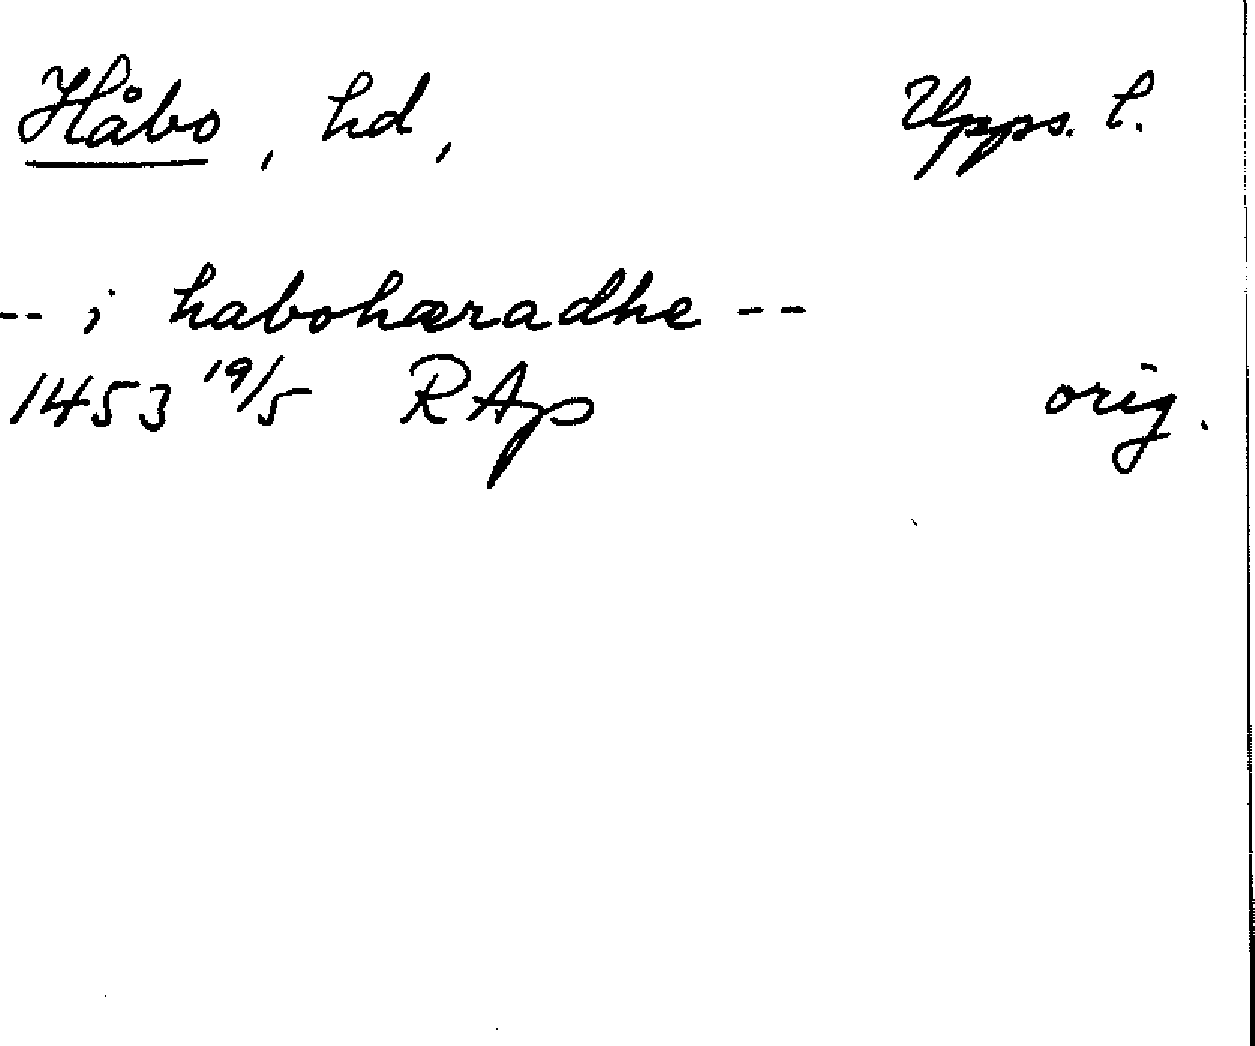 Håbo, hd, Upps. l.
-- i habohæradhe --
1453 19/5 RAp orig.